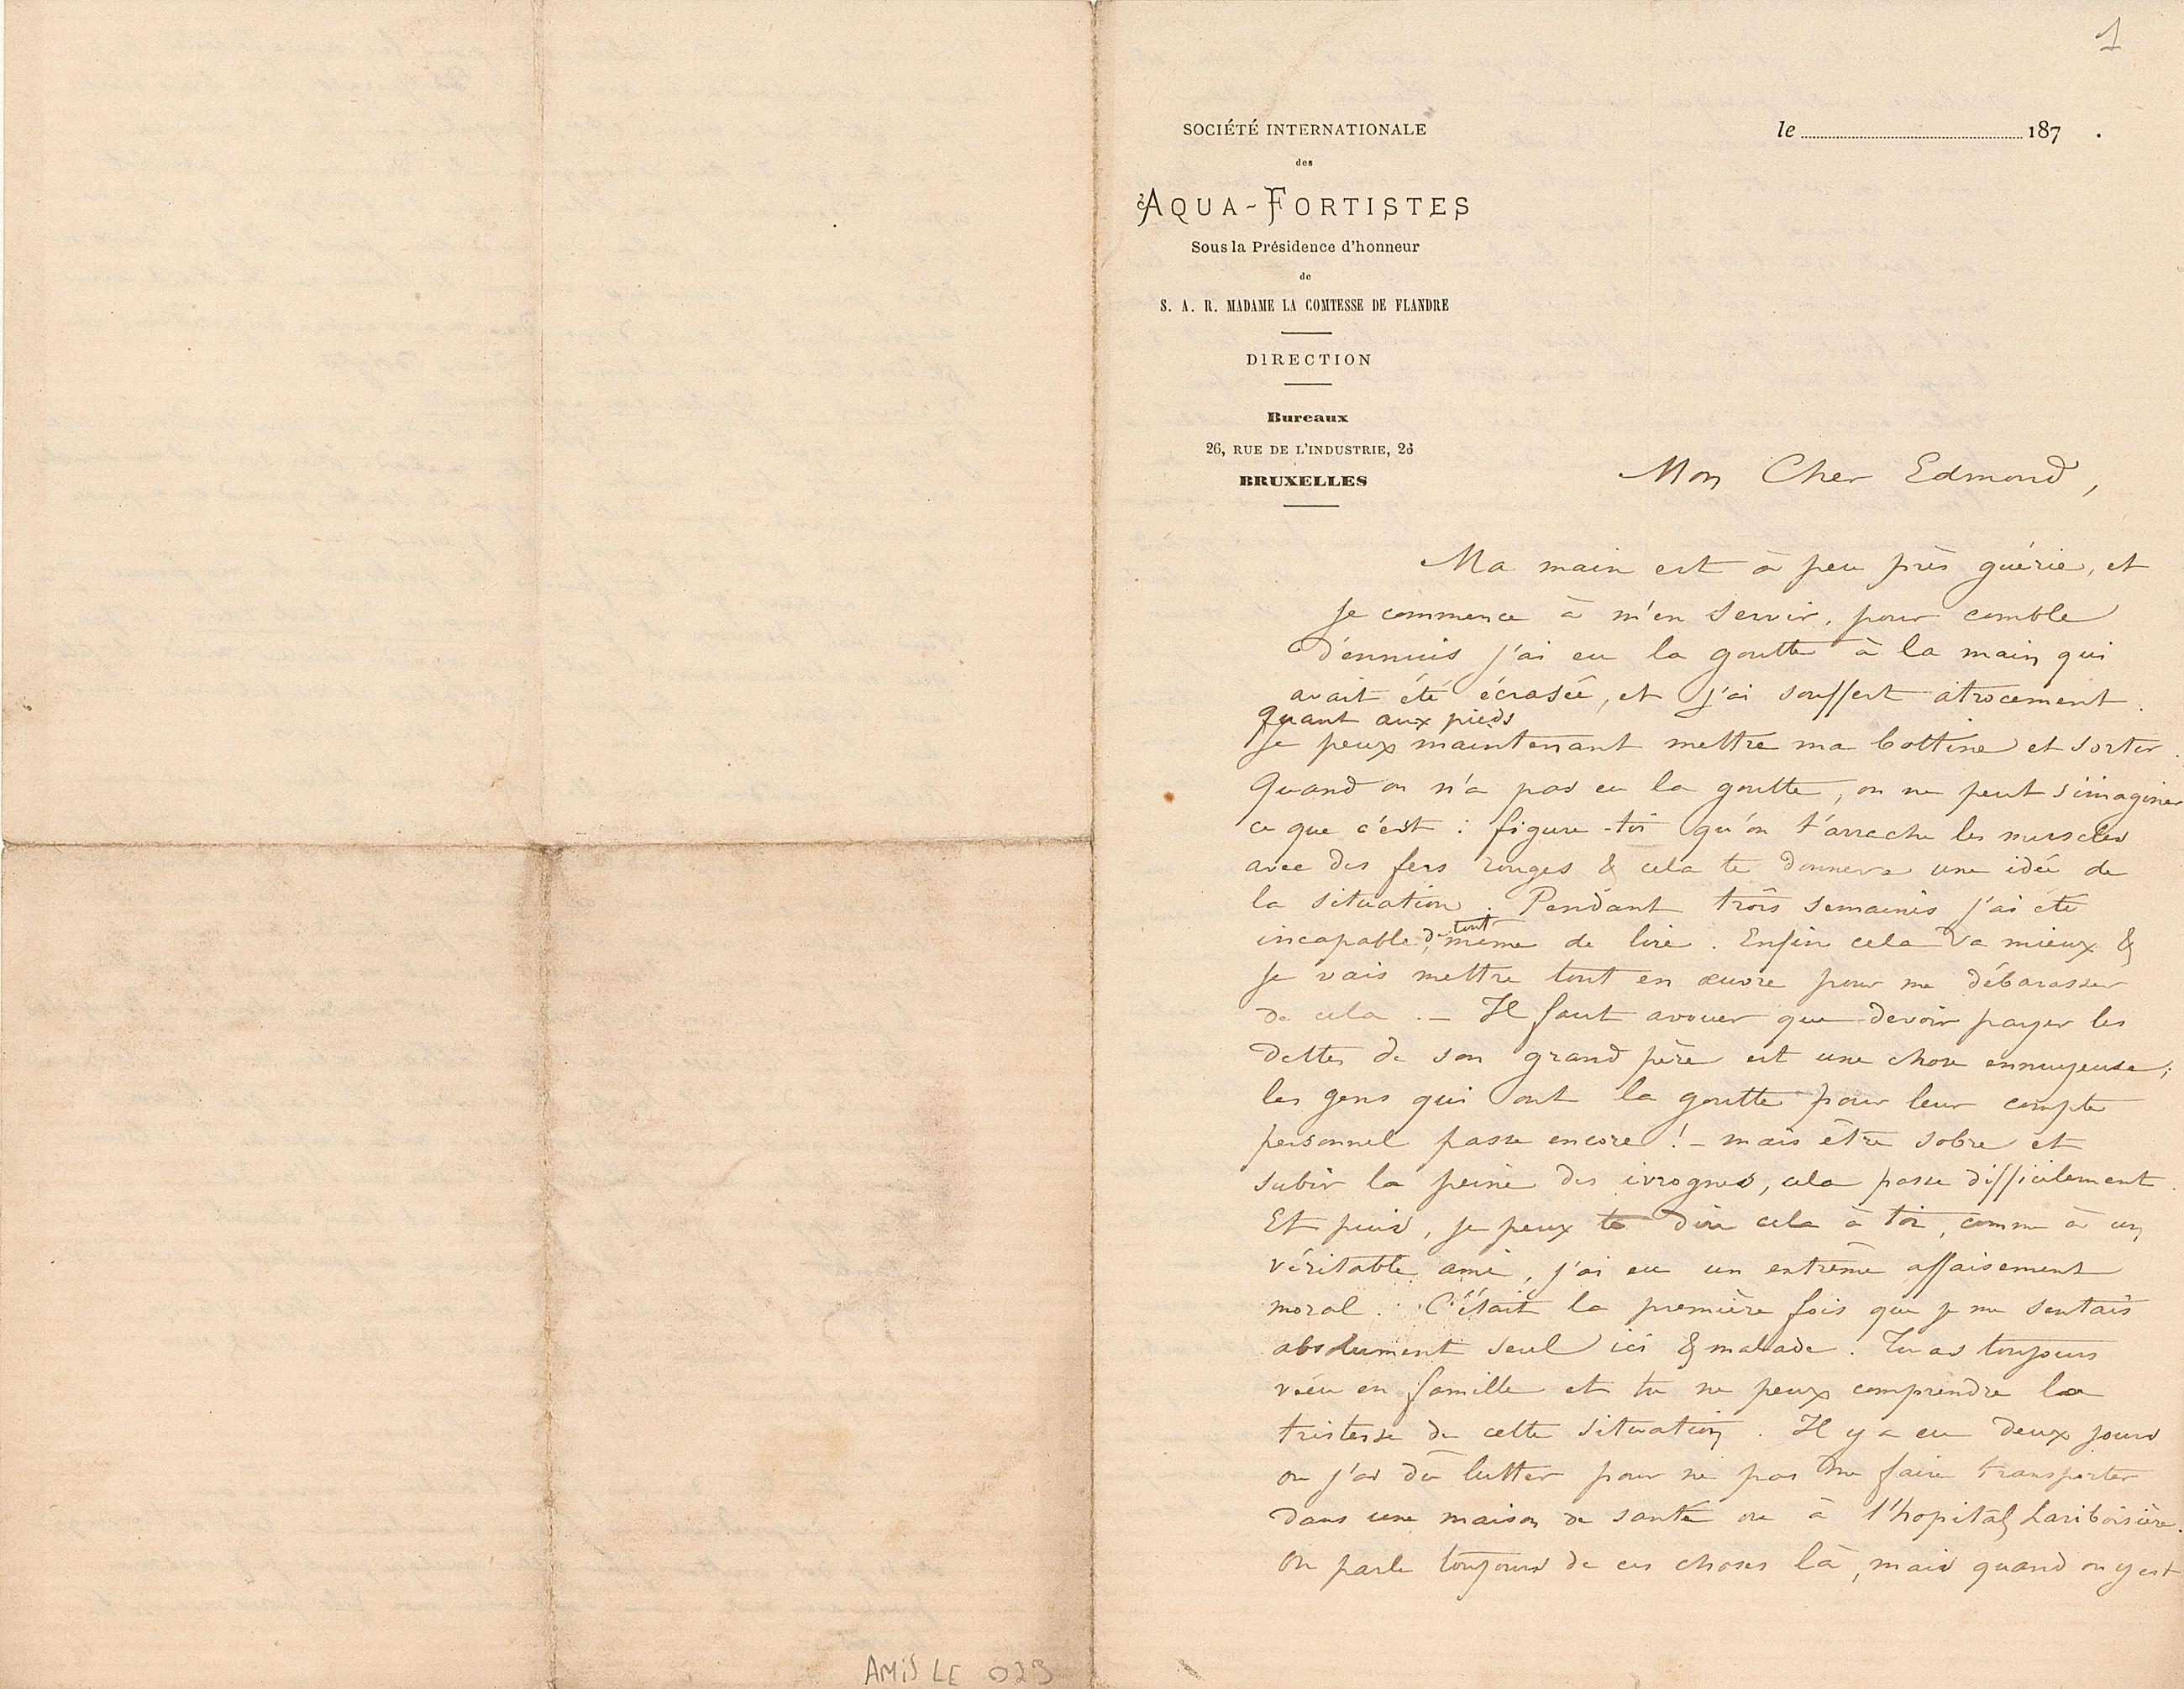 1
SOCIÉTÉ INTERNATIONALE
des
AQUA-FORTISTES
Sous la Présidence d'honneur
de
S. A. R. MADAME LA COMTESSE DE FLANDRE
DIRECTION
Bureaux
26, RUE DE L'INDUSTRIE, 26
BRUXELLES
le 187 .
Mon Cher Edmond,
Ma main est à peu près guérie, et
je commence à m'en servir, pour comble
d'ennuis j'ai eu la goutte à la main qui
avait été écrasée, et j'ai souffert atrocement.
Quant aux pieds
je peux maintenant mettre ma bottine et sortir.
Quand on n'a pas eu la goutte, on ne peut s'imaginer
ce que c'est : figure-toi qu'on t'arrache les muscles
avec des fers rouges & cela te donnera une idée de
la situation. Pendant trois semaines j'ai été
incapable de tout, même de lire. Enfin cela va mieux &
je vais mettre tout en œuvre pour me débarasser
de cela. — Il faut avouer que devoir payer les
dettes de son grand père est une chose ennuyeuse;
les gens qui ont la goutte pour leur compte
personnel passe encore ! – mais être sobre et
subir la peine des ivrognes, cela passe difficilement.
Et puis, je peux te dire cela à toi, comme à un
véritable ami, j'ai eu un extrême affaisement
moral. C'était la première fois que je me sentais
absolument seul ici & malade. Tu as toujours
vécu en famille et tu ne peux comprendre la
tristesse de cette situation. Il y a eu deux jours
ou j'ai dû lutter pour ne pas me faire transporter
dans une maison de santé ou à l'hopital Lariboisière.
On parle toujours de ces choses là, mais quand on y est
AMIS LE 023